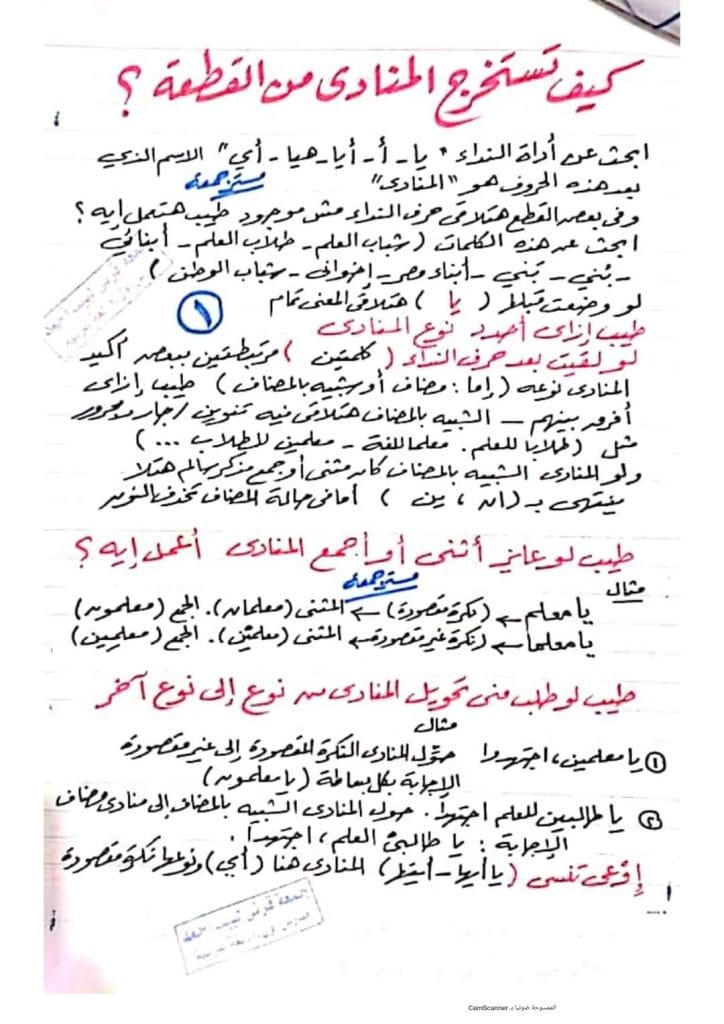 كيف تستخرج المنادى من القطعة ؟
ابحث عن أداة النداء " يا - أ - أيا - هيا - أي " الاسم الذي
بعد هذه الحروف هو "المنادى"
وفى بعض القطع هتلاقى حرف النداء مش موجود طيب هتعمل إيه ؟
ابحث عن هذه الكلمات ( شباب العلم - طلاب العلم - أبنائي
- بُني - بَني - أبناء مصر - إخوانى - شباب الوطن )
لو وضعت قبلها ( يا ) هتلاقى المعنى تمام
١
طيب إزاى أحدد نوع المنادى
لو لقيت بعد حرف النداء ( كلمتين ) مرتبطتين ببعض أكيد
المنادى نوعه ( إما : مضاف أو شبيه بالمضاف ) طيب إزاى
أفرق بينهم - الشبيه بالمضاف هتلاقى فيه تنوين / جار ومجرور
مثل ( طلابا للعلم . معلما للغة - معلمين للطلاب ... )
ولو المنادى الشبيه بالمضاف كان مثنى أو جمع مذكر سالم هتلا
ينتهى بـ ( ان ، ين ) أما فى حالة المضاف تحذف النون
طيب لو عايز أثنى أو أجمع المنادى أعمل إيه ؟
مثال
يا معلم ← ( نكرة مقصودة ) ← المثنى ( معلمان ) . الجمع ( معلمون )
يا معلما ← ( نكرة غير مقصودة ← المثنى ( معلمَين ) . الجمع ( معلمِين )
طيب لو طلب منى تحويل المنادى من نوع إلى نوع آخر
مثال
① يا معلمين ، اجتهدوا حوّل المنادى النكرة المقصودة إلى غير مقصودة
الإجابة بكل بساطة ( يا معلمون )
② يا طالبين للعلم اجتهدا . حول المنادى الشبيه بالمضاف إلى منادى مضاف
الإجابة : يا طالبىْ العلم ، اجتهدا .
إوعى تنسى ( يا أيها - أيتها ) المنادى هنا ( أي ) ونوعها نكرة مقصودة
الممسوحة ضوئيا بـ CamScanner